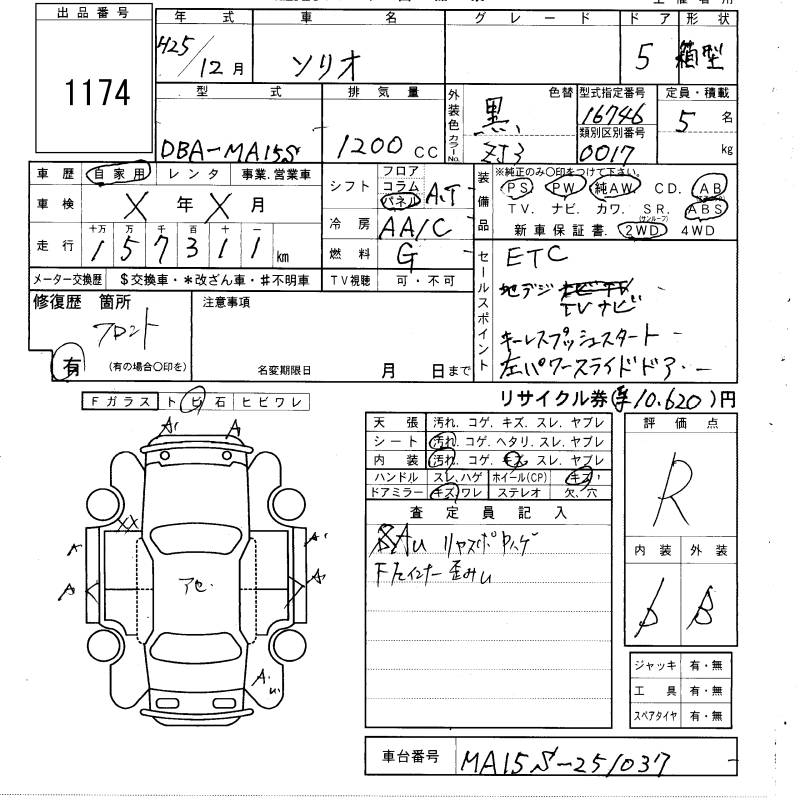 出品番号
1174
年式 車名 グレード ドア 形状
H25/12月 ソリオ 5 箱型
型式 排気量 外装色 カラーNo. 色替 型式指定番号 定員・積載
DBA-MA15S 1200 CC 黒 ZJ3 16746 5名
類別区別番号
0017 kg
車歴 自家用 レンタ 事業.営業車
車検 X年X月
走行 十万 万 千 百 十 一
157311km
メーター交換歴 $交換車・*改ざん車・#不明車
シフト フロア コラム パネル A.T
冷房 AA/C
燃料 G
TV視聴 可・不可
装備品 ※純正のみ〇印をつけて下さい。
PS PW 純AW CD. AB
TV. ナビ. カワ. SR. ABS
(サンルーフ)
新車保証書. 2WD 4WD
セールスポイント
ETC
地デジ
TVナビ
キーレスプッシュスタート
左パワースライドドア
修復歴 箇所
フロント
有 (有の場合〇印を)
注意事項
名変期限日 月 日まで
リサイクル券(¥10.620)円
Fガラス トビ石 ヒビワレ
天張 汚れ. コゲ. キズ. スレ. ヤブレ
シート 汚れ. コゲ. ヘタリ. スレ. ヤブレ
内装 汚れ. コゲ. キズ. スレ. ヤブレ
ハンドル スレ、ハゲ ホイール(CP) キズ
ドアミラー キズ ワレ ステレオ 欠、穴
査定員記入
評価点
R
内装 外装
B
ジャッキ 有・無
工具 有・無
スペアタイヤ 有・無
A A
XX
A
A
A
車台番号 MA15S-251037